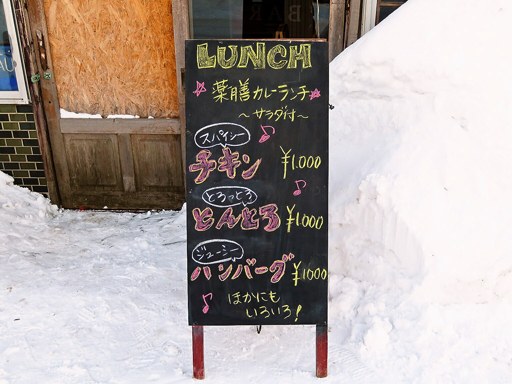 LUNCH
薬膳カレーランチ
～サラダ付～
スパイシー
チキン ¥1,000
とろっとろ
とんとろ ¥1,000
ジューシー
ハンバーグ ¥1000
ほかにも
いろいろ!